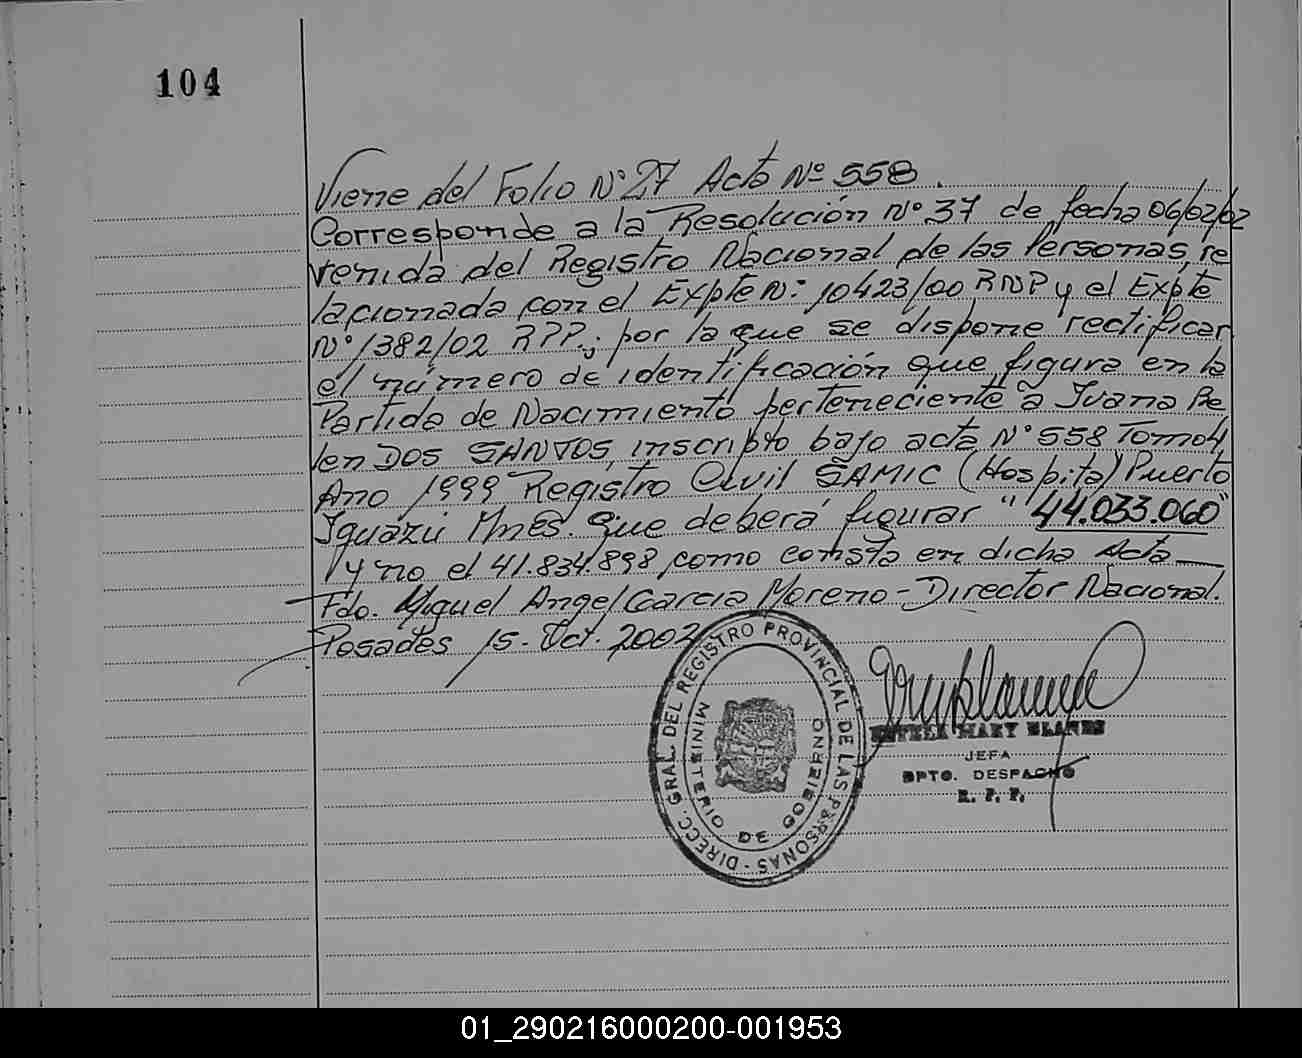 104
Viene del Folio N° 27 Acta Nº 558.
Corresponde a la Resolución N° 37 de fecha 06/02/02
venida del Registro Nacional de las Personas, re
lacionada con el Expte N: 10423/00 RNP y el Expte
N° 1382/02 RPP.; por la que se dispone rectificar
el número de identificación que figura en la
Partida de Nacimiento perteneciente a Ivana Be
len DOS SANTOS, inscripto bajo acta N° 558 Tomo 4
Ano 1999 Registro Civil SAMIC (Hospital) Puerto
Iguazú Mnes. que deberá figurar "44.033.060"
y no el 41.834.898, como consta en dicha Acta
Fdo. Miguel Angel Garcia Moreno - Director Nacional.
Posadas 15. Oct. 2002
DIRECC. GRAL. DEL REGISTRO PROVINCIAL DE LAS PERSONAS -
MINISTERIO DE GOBIERNO
MARY BLANES
JEFA
DPTO. DESPACHO
R. P. P.
01_290216000200-001953